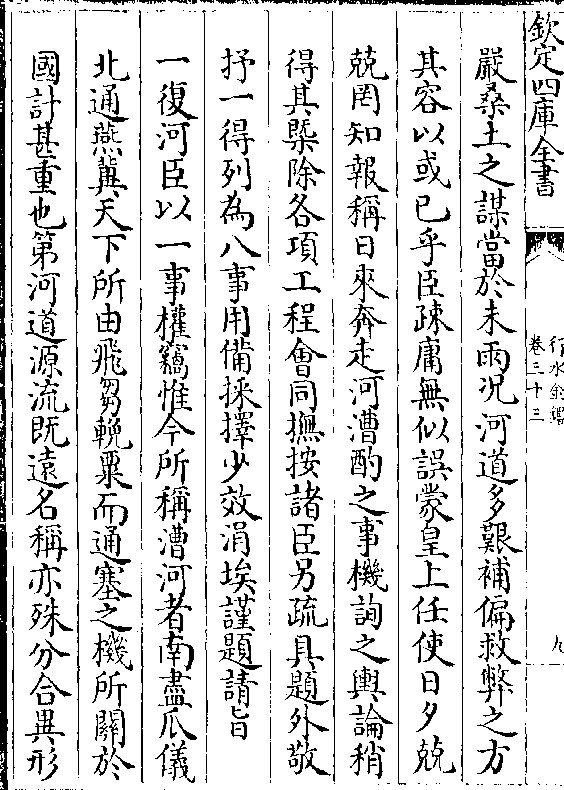 欽定四庫全書
行水金鑑
卷三十三
九
嚴桑土之謀當於未雨况河道多艱補偏救弊之方
其容以或已乎臣疎庸無似誤蒙皇上任使日夕兢
兢罔知報稱日來奔走河漕酌之事機詢之輿論稍
得其槩除各項工程會同撫按諸臣另疏具題外敬
抒一得列為八事用備採擇少效涓埃謹題請旨
一復河臣以一事權竊惟今所稱漕河者南盡瓜儀
北通燕冀天下所由飛芻輓粟而通塞之機所關於
國計甚重也第河道源流既遠名稱亦殊分合異形